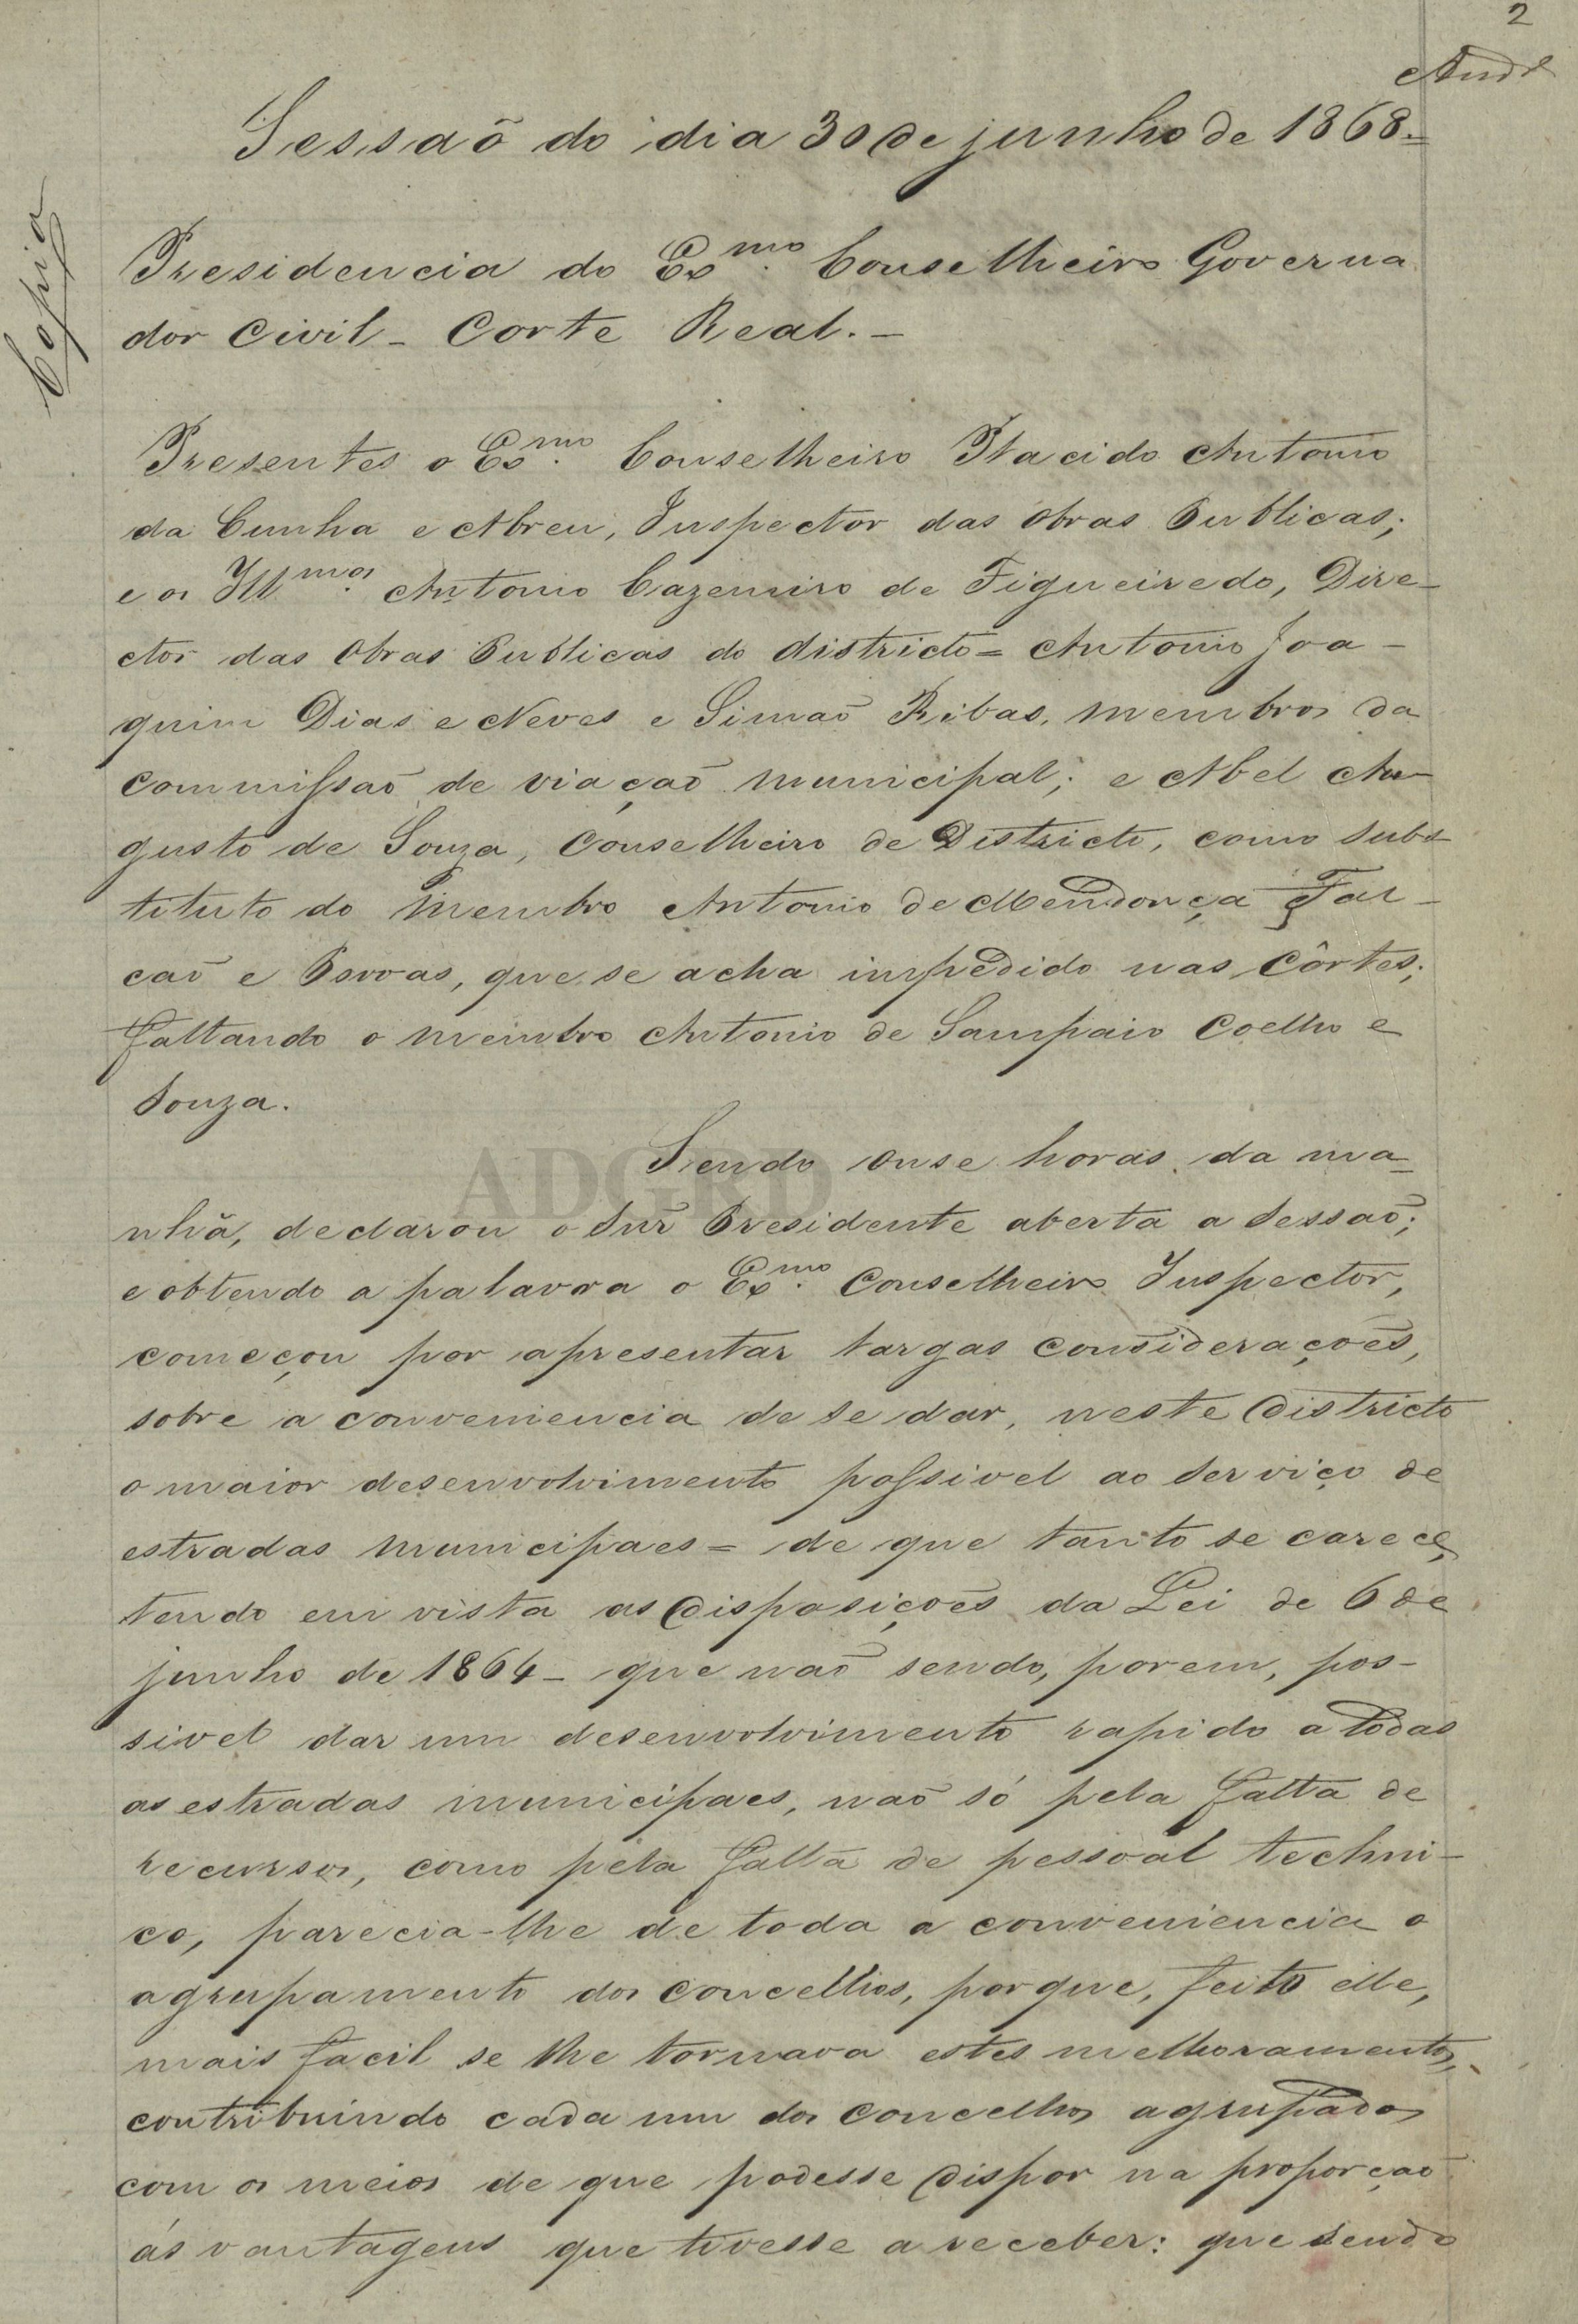 2
Sessaõ do dia 30 de junho de 1868=
Copia
Presidencia do Exmo. Conselheiro Governa
dor Civil - Corte Real. -
Presentes o Exmo. Conselheiro Placido Antonio
da Cunha e Abreu, Inspector das Obras Publicas;
e os Illmos. Antonio Cazemiro de Figueiredo, Dire-
ctor das Obras Publicas do districto = Antonio Joa-
quim Dias e Neves e Simaõ Ribas, membros da
commissaõ de viaçaõ municipal; e Abel Au-
gusto de Souza, Conselheiro de Districto, como subs-
tituto do membro Antonio de Mendonça Fal-
caõ e Povoas, que se acha impedido nas Côrtes;
faltando o membro Antonio de Sampaio Coelho e
Souza.
Sendo onse horas da ma-
nhã, declarou o Snr Presidente aberta a Sessaõ;
e obtendo a palavra o Exmo. Conselheiro Inspector,
começou por apresentar largas consideraçoẽs,
sobre a conveniencia de se dar, neste districto
o maior desenvolvimento possivel ao serviço de
estradas municipaes = de que tanto se carece,
tendo em vista as disposiçoẽs da Lei de 6 de
junho de 1864 - que naõ sendo, porem, pos-
sivel dar um desenvolvimento rapido a todas
as estradas municipaes, naõ só pela falta de
recursos, como pela falta de pessoal techni-
co, parecia-lhe de toda a conveniencia o
agrupamento dos concelhos, porque, feito elle,
mais facil se lhe tornava estes melhoramentos,
contribuindo cada um dos concelhos agrupados
com os meios de que podesse dispor na proporçaõ
ás vantagens que tivesse a receber: que sendo
ADGRD